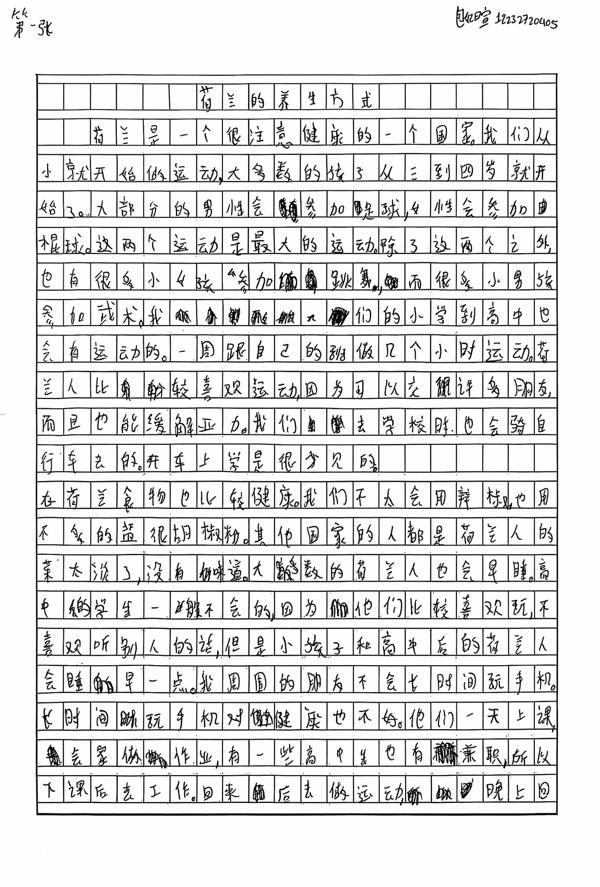 第一张
包 暄 12232720405
荷兰的养生方式
荷兰是一个很注意健康的一个国家。我们从
小就开始做运动。大多数的孩子从三到四岁就开
始了。大部分的男性会参加足球,女性会参加曲
棍球。这两个运动是最大的运动。除了这两个之外,
也有很多小女孩参加跳舞,而很多小男孩
参加武术。我们的小学到高中也
会有运动的。一周跟自己的班做几个小时运动。荷
兰人比较喜欢运动,因为可以交许多朋友,
而且也能缓解压力。我们去学校时也会骑自
行车去的。开车上学是很少见的。
在荷兰食物也比较健康。我们不太会用辣椒,也用
不多的盐很胡椒粉。其他国家的人都是荷兰人的
菜太淡了,没有味道。大多数的荷兰人也会早睡。高
中的学生一般不会的,因为他们比较喜欢玩,不
喜欢听别人的话,但是小孩子和高中后的荷兰人
会睡早一点。我周围的朋友不会长时间玩手机。
长时间玩手机对健康也不好。他们一天上课,
会家做作业,有一些高中生也有兼职,所以
下课后去工作。回来后去做运动,晚上回